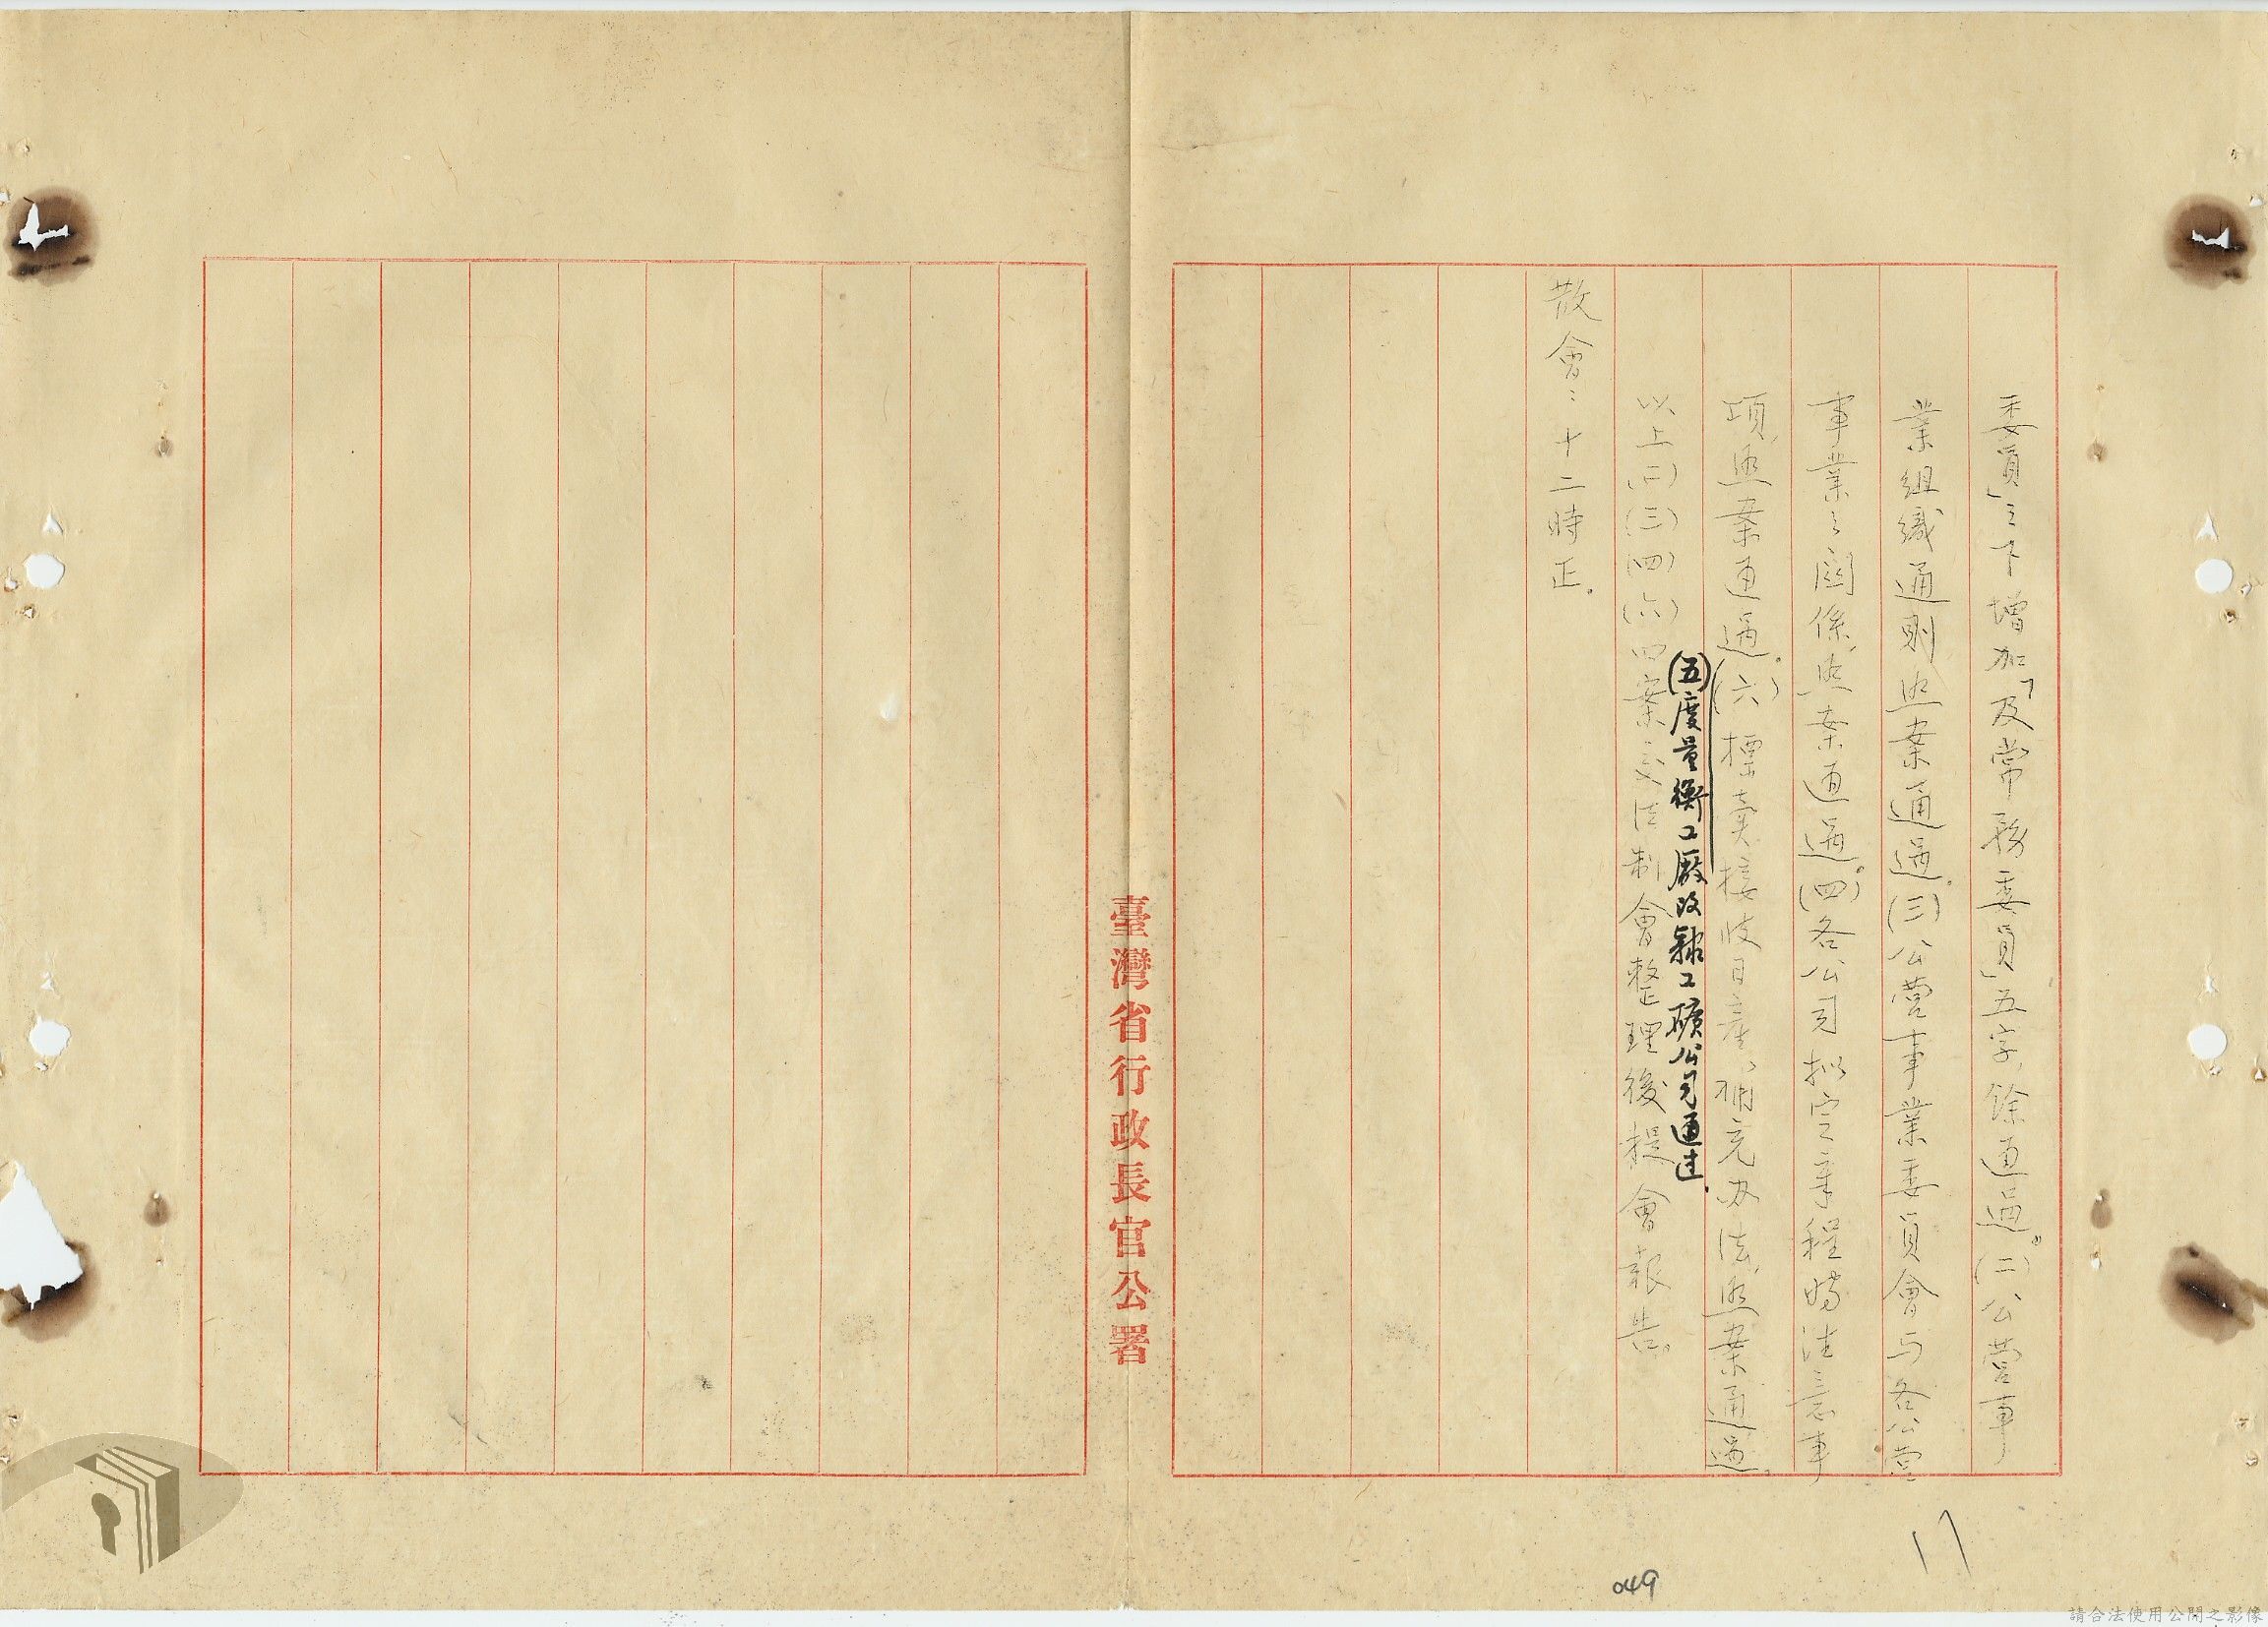 委員」之下增加「及常務委員」五字，餘通過。(二)公營事
業組織通則照案通過。(三)公營事業委員會与各公營
事業之關係，照案通過。(四)各公司拟定章程時注意事
項，照案通過。(六)標賣接收日產、補充办法，照案通過。
(五)度量衡工廠改隸工礦公司通过.
以上(二)(三)(四)(六)四案交法制會整理後提會報告。
散會：十二時正。
臺灣省行政長官公署
11
049
請合法使用公開之影像